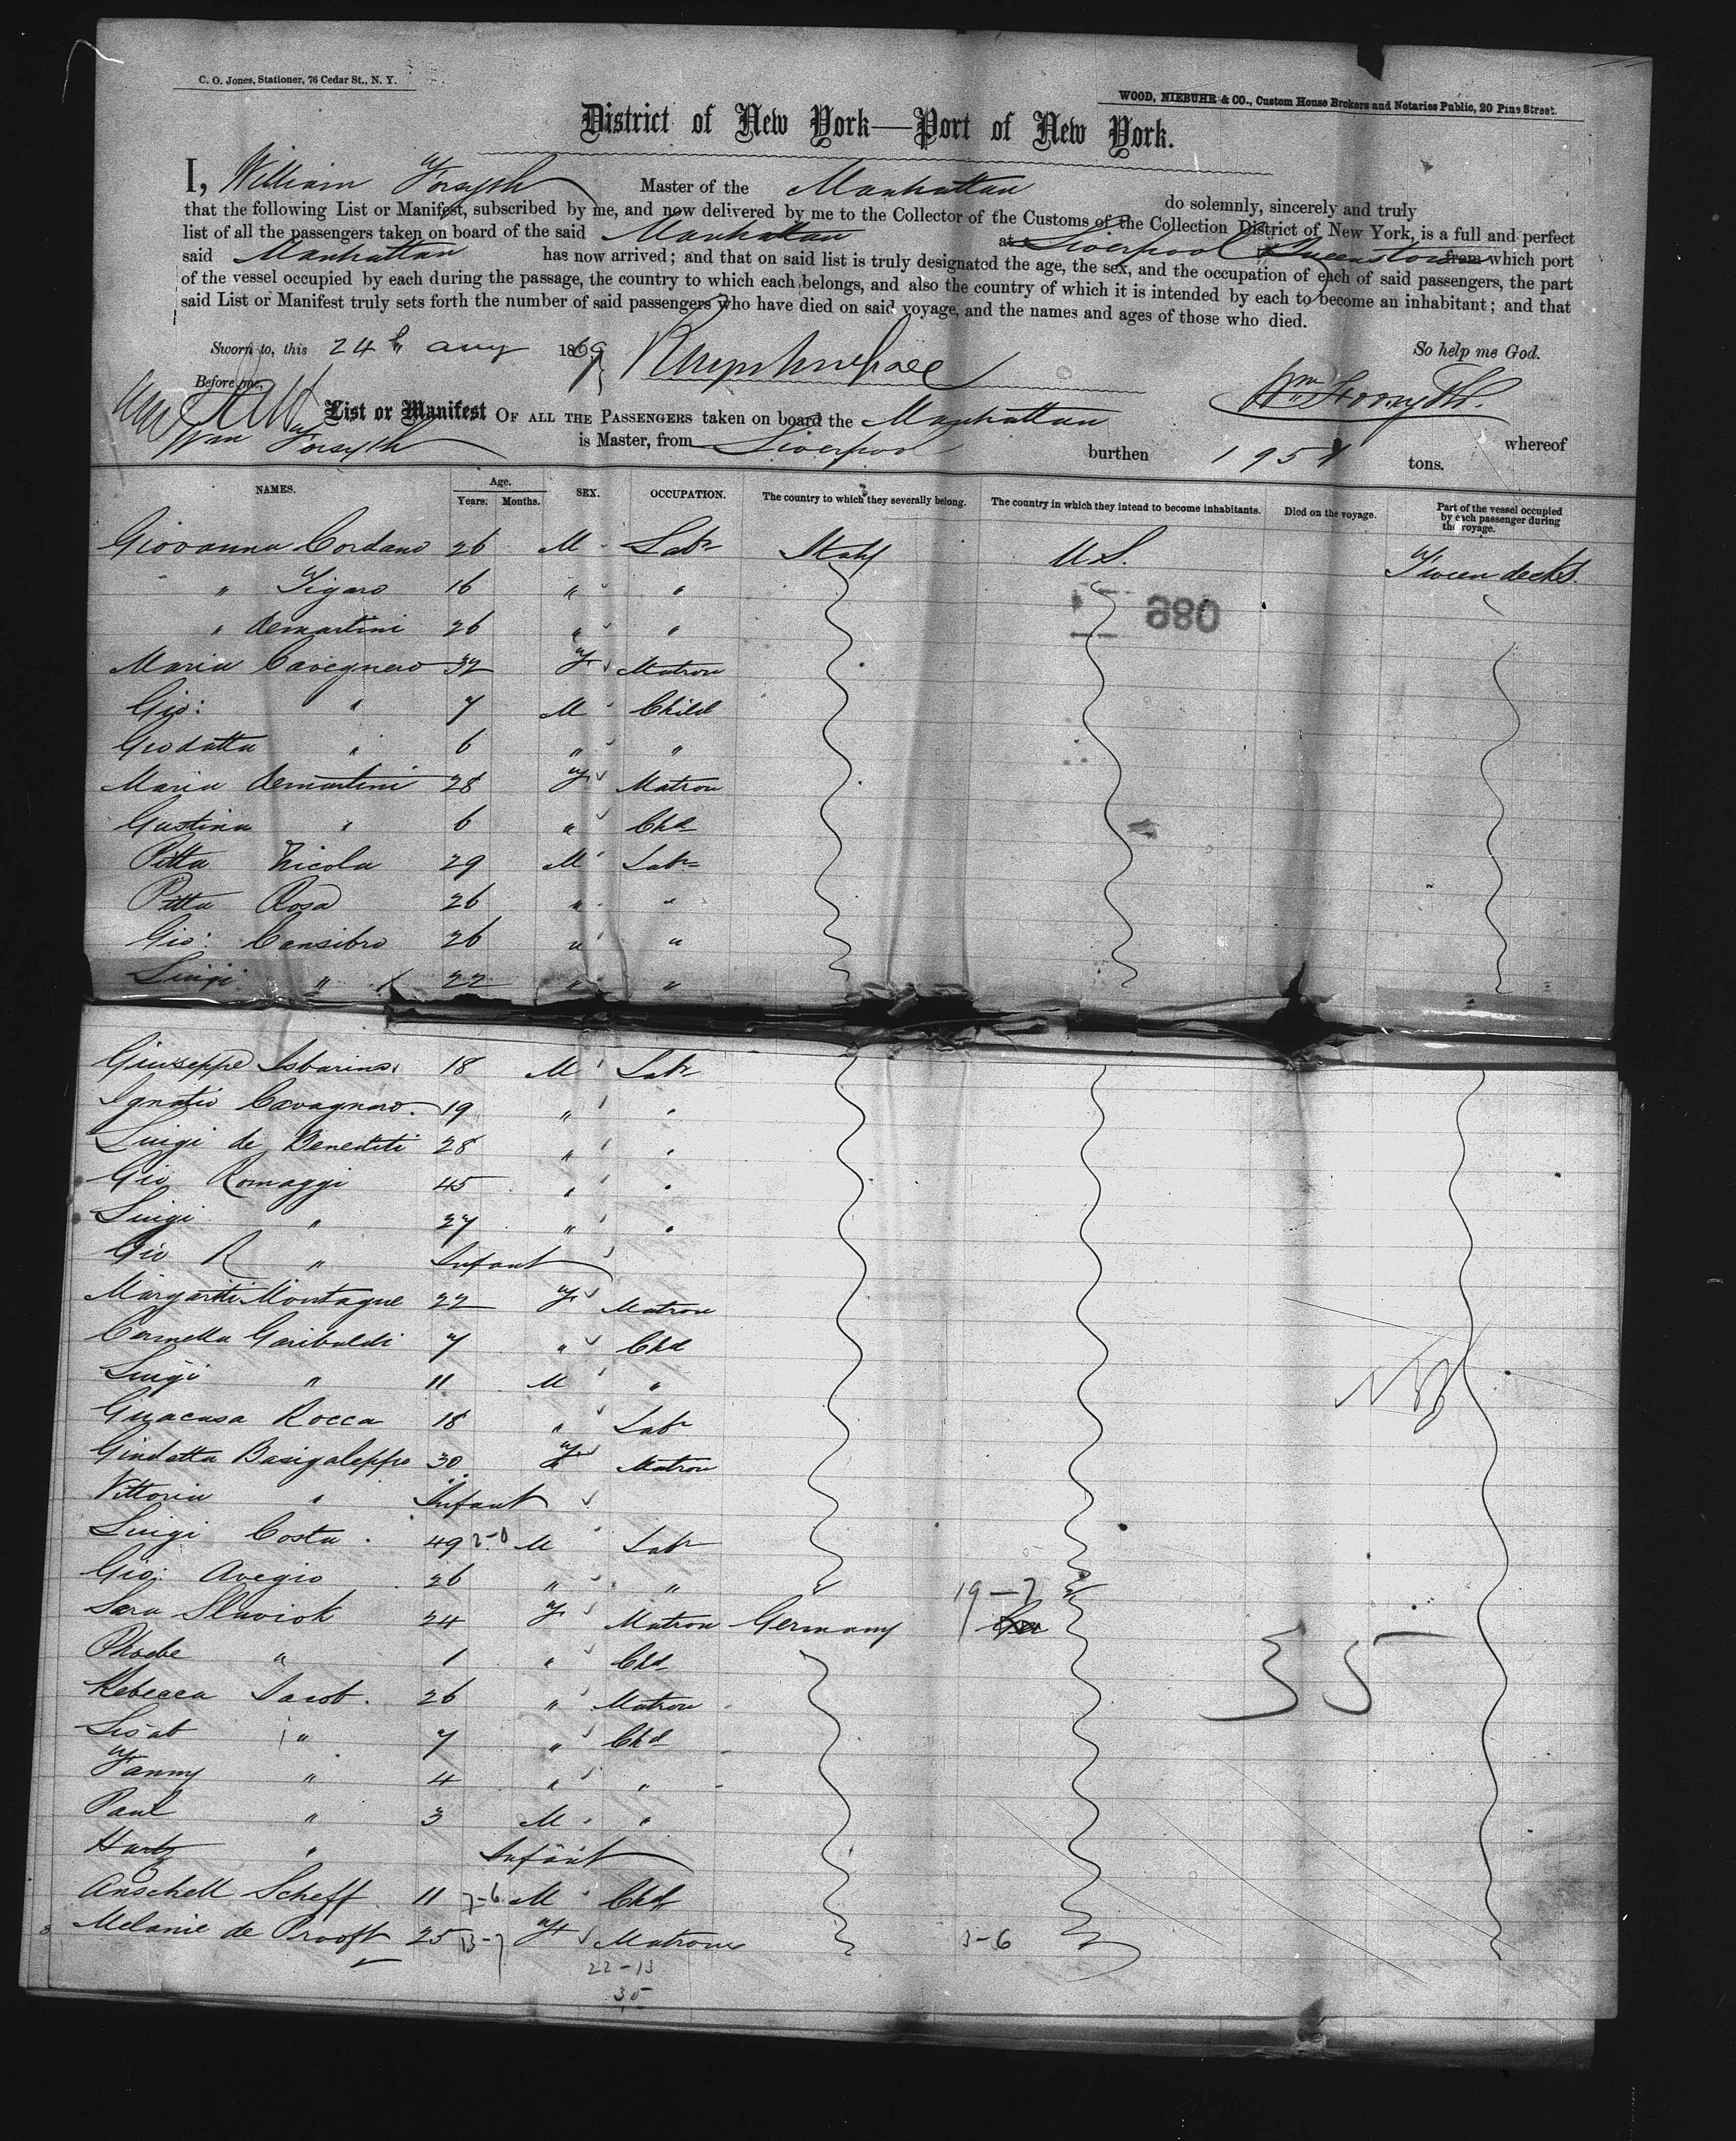 C. O. Jones, Stationer, 76 Cedar St., N. Y.
WOOD, NIEBUHR & CO., Custom House Brokers and Notaries Public, 20 Pine Street.
District of New York—Port of New York.
I, William Forsyth Master of the Manhattan do solemnly, sincerely and truly
that the following List or Manifest, subscribed by me, and now delivered by me to the Collector of the Customs of the Collection District of New York, is a full and perfect
list of all the passengers taken on board of the said Manhattan at Liverpool & Queenstown from which port
said Manhattan has now arrived; and that on said list is truly designated the age, the sex, and the occupation of each of said passengers, the part
of the vessel occupied by each during the passage, the country to which each belongs, and also the country of which it is intended by each to become an inhabitant; and that
said List or Manifest truly sets forth the number of said passengers who have died on said voyage, and the names and ages of those who died.
Sworn to, this 24th Aug 1869 So help me God.
Before me, Wm Forsyth.
List or Manifest OF ALL THE PASSENGERS taken on board the Manhattan whereof
Wm Forsyth is Master, from Liverpool burthen 1957 tons.
NAMES. Age. Years. Months. SEX. OCCUPATION. The country to which they severally belong. The country in which they intend to become inhabitants. Died on the voyage. Part of the vessel occupied by each passenger during the voyage.
Giovanna Cordano 26 M Labr Italy U S. Tween decks.
" Figaro 16 " "
680
" demartini 26 " "
Maria Cavegnero 32 F Matron
Gio: " 7 M Child
Giodatta " 6 " "
Maria demartini 28 F Matron
Gustina " 6 " Chd
Pitta Nicola 29 M Labr
Pitta Rosa 26 " "
Gio: Censibro 26 " "
Luigi " 22 " "
Giuseppe Isbarino 18 M Labr
Ignatio Cavagnaro. 19 " "
Luigi de Benediti 28 " "
Gio Romaggi 45 " "
Luigi " 27 " "
Gio R " Infant
Margariti Montague 22 F Matron
Carmella Garibaldi 7 " Chd
Luigi " 11 M "
Guacasa Rocca 18 " Labr
Gindatta Basigaleppo 30 F Matron
Vittoria " Infant
Luigi Costa 49 2-0 M Labr
Gio: Avegio 26 " " 19-7
Sara Slaviok 24 F Matron Germany
Phoebe " 1 " Chd
35
Rebecca Jacob. 26 " Matron
" 7 " Chd
Fanny " 4 " "
Paul " 3 M "
Hartz " Infant
Anschell Scheff 11 7-6 M Chd
Melanie de Prooft 25 13-7 F Matron 3-6
22-13
35